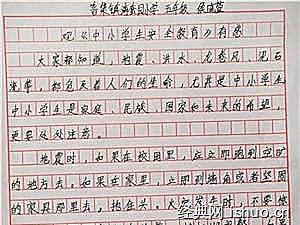 观《中小学生安全教育》有感
大家都知道，地震、洪水、龙卷风、泥石
流等，都危害着人们的生命，尤其是中小学生
中小学生是家庭、民族、国家和未来的希望，
更要处处注意。
地震时，如果在校园里，应立即跑到空旷
的地方去。如果在家里，立即到墙角或者坚固
的家具那里去，抱住头。火灾发生时，不要惊
经典网 ushuo.cn